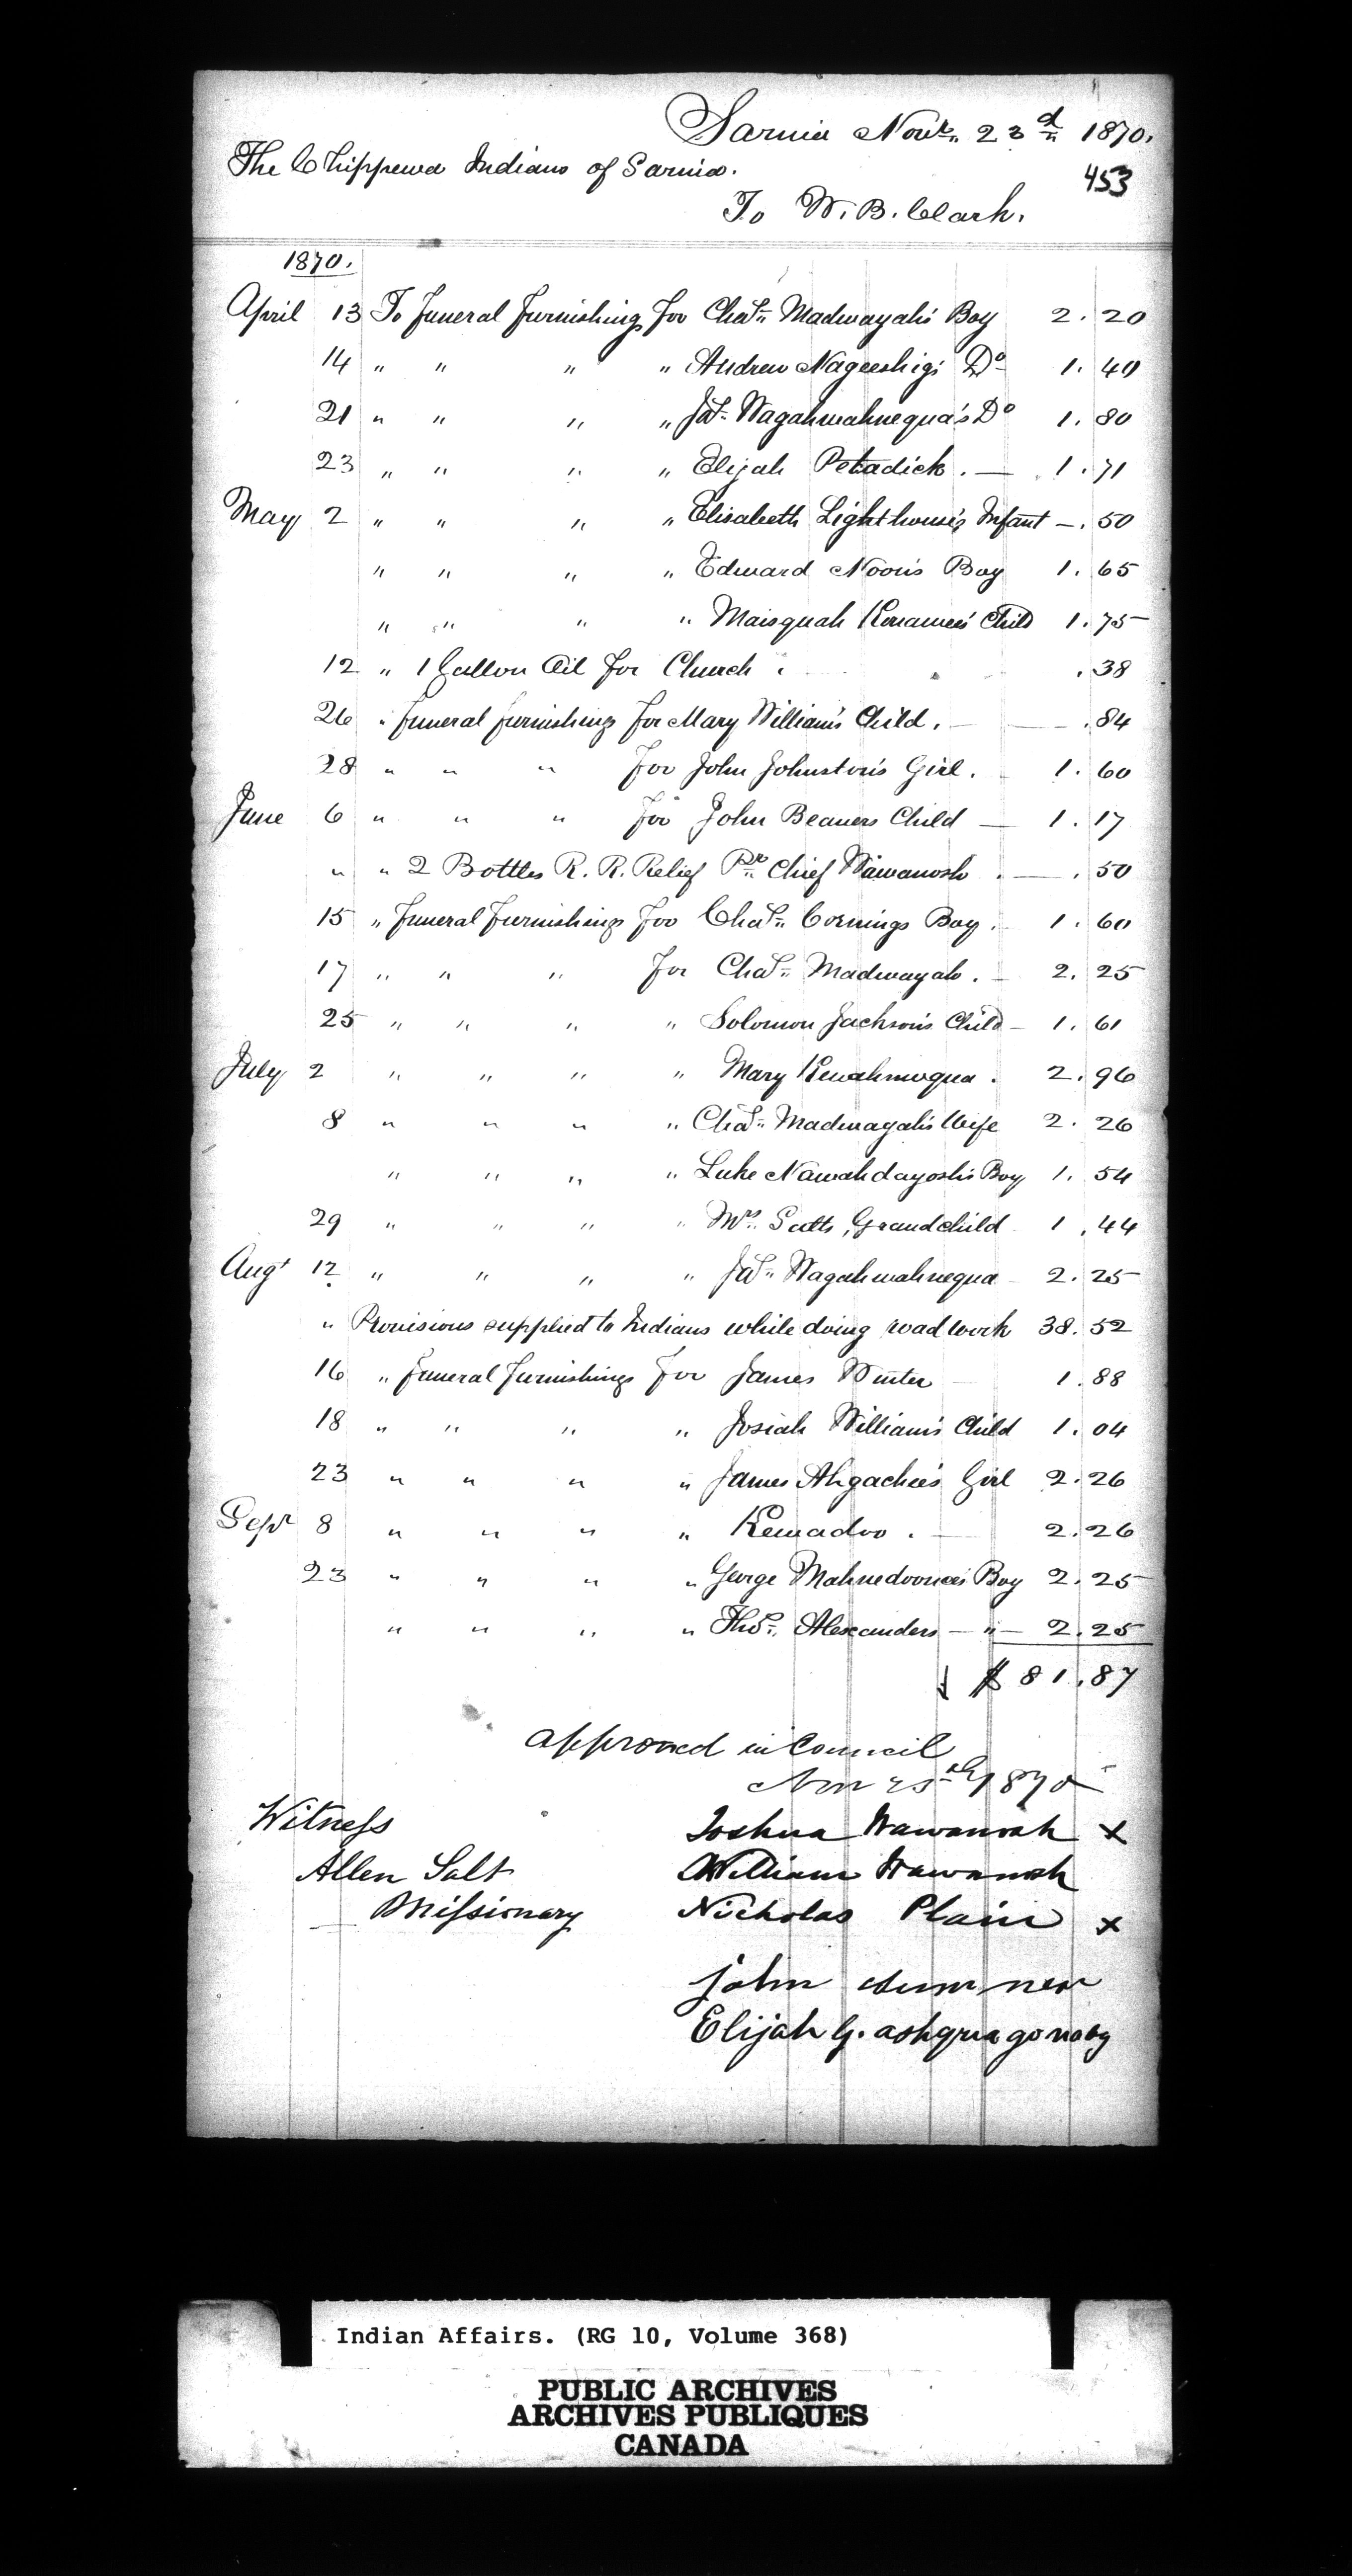 Sarnia Novr. 23d 1870.
The Chippewa Indians of Sarnia.
453
To W. B. Clark.
1870.
April 13 To Funeral Furnishing for Chas. Madwayah's Boy 2.20
14 " " " " Andrew Nageeshig's Do 1.40
21 " " " " Jas. Wagahwahnequa's Do 1.80
23 " " " " Elijah Petadick. — 1.71
May 2 " " " " Elisabeth Lighthouse's Infant — .50
" " " " Edward Noon's Boy 1.65
" " " " Maisquah Child 1.75
12 " 1 Gallon Oil for Church .38
26 " Funeral furnishing for Mary William's Child. — .84
28 " " " For John Johnston's Girl. 1.60
June 6 " " " For John Beavers Child — 1.17
" " 2 Bottles R. R. Relief Pr. Chief Wawanosh . — .50
15 " Funeral Furnishings For Chas. Cornings Boy. 1.60
17 " " " For Chas. Madwayah. — 2.25
25 " " " " Solomon Jackson's Child — 1.61
July 2 " " " " Mary . 2.96
8 " " " " Chas. Madwayah's Wife 2.26
" " " " Luke Nawahdayosh's Boy 1.54
29 " " " " Mrs. Grandchild 1.44
Augt 12 " " " " Jas. Wagahwahnequa 2.25
" Provisions supplied to Indians while doing road work 38.52
16 " Funeral Furnishings For James Winter 1.88
18 " " " " Josiah William's Child 1.04
23 " " " " James Ahgachee's Girl 2.26
Sept 8 " " " " Kewadoo. — 2.26
23 " " " " George Mahnedoonce's Boy 2.25
" " " " Thos. Alexanders — " — 2.25
$81.87
approved in Council
Nov 25th 1870
Witness Joshua Wawanosh x
Allen Salt William Wawanosh
Missionary Nicholas Plain x
john summer
Elijah G. ashquagonaby
Indian Affairs. (RG 10, Volume 368)
PUBLIC ARCHIVES
ARCHIVES PUBLIQUES
CANADA